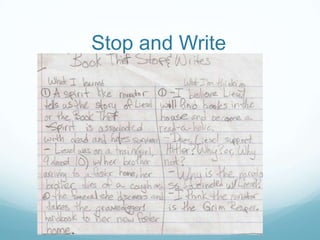 Stop and Write
Book Thief Stop & Writes
What I learned
① A spirit like narrator
tells us the story of Liesel
or the Book Thief
-Spirit is associated
with dead and hates survivors
- Liesel was on a train
9 almost 10) w/ her brother
to a foster home, her
brother dies of a cough
② the funeral she
takes the gravediggers
handbook to her new foster
home.
What I'm thinking
① -I believe Liesel
will find books in the
house and become a
read-a-holic.
-Does Liesel support
Hitler? Why or Why
not?
-Why is the
so
-I think the narrator
is the Grim Reaper.